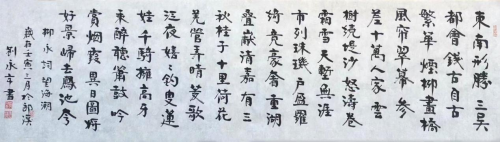 東南形勝三吳
都會錢塘自古
繁華煙柳畫橋
風簾翠幕參
差十萬人家雲
樹繞堤沙怒濤卷
霜雪天塹無涯
市列珠璣戶盈羅
綺競豪奢重湖
疊巘清嘉有三
秋桂子十里荷花
羌管弄晴菱歌
泛夜嬉嬉釣叟蓮
娃千騎擁高牙
乘醉聽簫鼓吟
賞煙霞異日圖將
好景歸去鳳池夸
柳永詞望海潮
壬寅三月於
劉永亭書